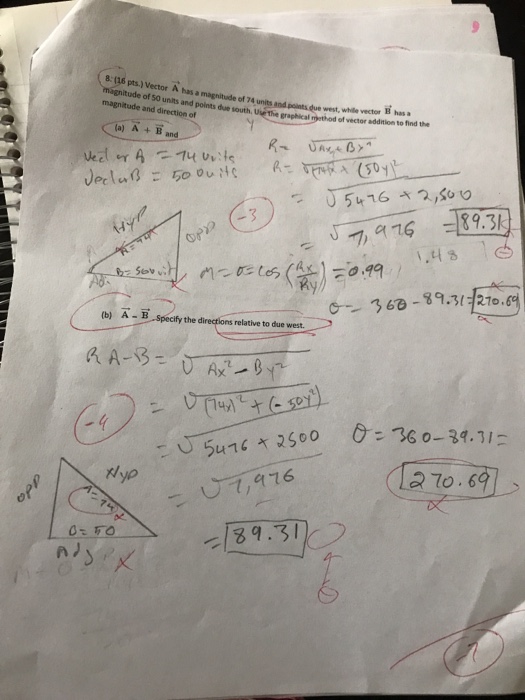 8. (16 pts.) Vector A has a magnitude of 74 units and points due west, while vector B has a
magnitude of 50 units and points due south. Use the graphical method of vector addition to find the
magnitude and direction of
(a) A + B and
Vector A = 74 Units
Vector B = 50 Units
R =
= √5476 + 2,500
= √7,976 = 89.31
-3
Hyp
A = 74
opp
Adj
= 0.99
1.48
θ = 360 - 89.31 = 270.69
(b) A - B. Specify the directions relative to due west.
R A-B = √Ax² - By²
= √(74x)² + (-50y²)
-4
= √5476 + 2500
θ = 360 - 89.31 =
270.69
= √7,976
= 89.31
opp
Hyp
A = 74
Adj
-7